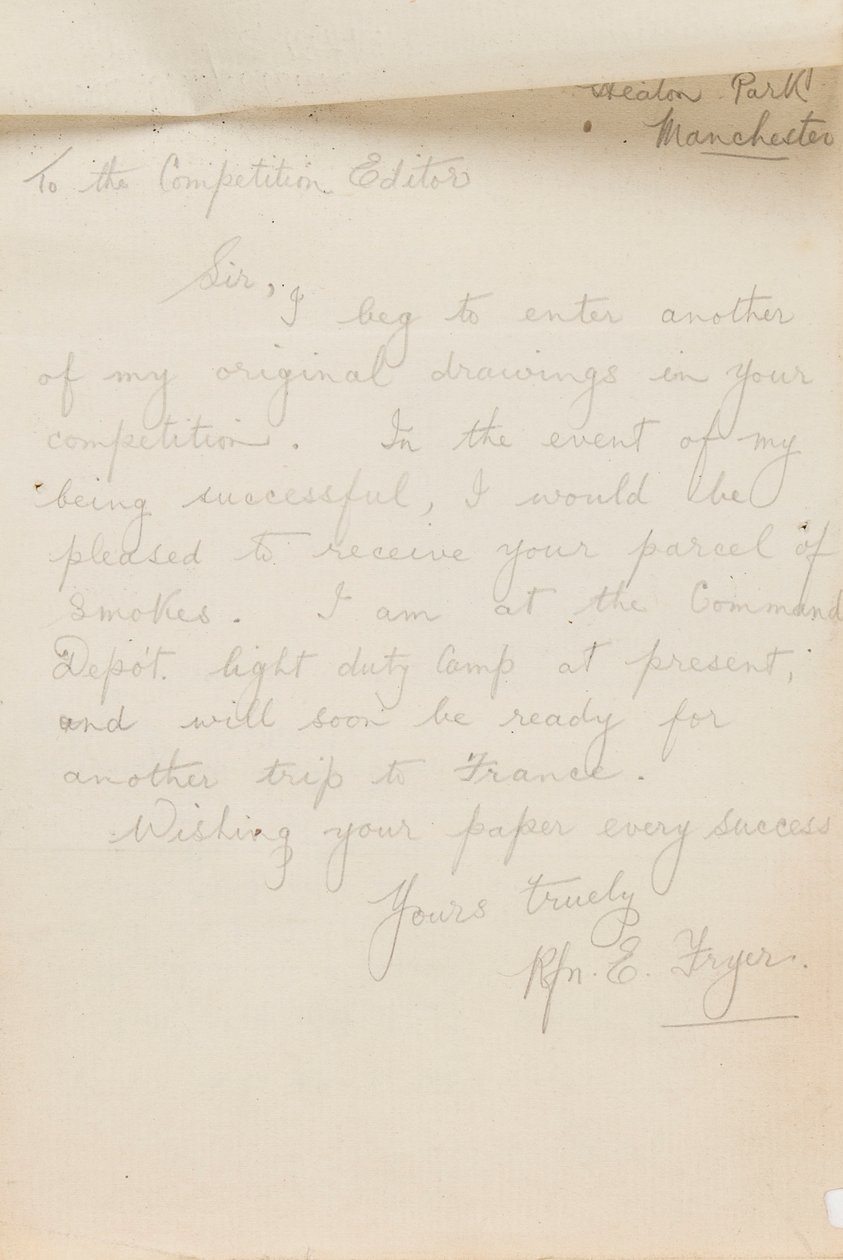 Heaton Park
Manchester
To the Competition Editor
Sir,
I beg to enter another
of my original drawings in your
competition. In the event of my
being successful, I would be
pleased to receive your parcel of
smokes. I am at the Command
Depót. light duty Camp at present,
and will soon be ready for
another trip to France.
Wishing your paper every success
Yours truely
Rfn. E. Fryer.